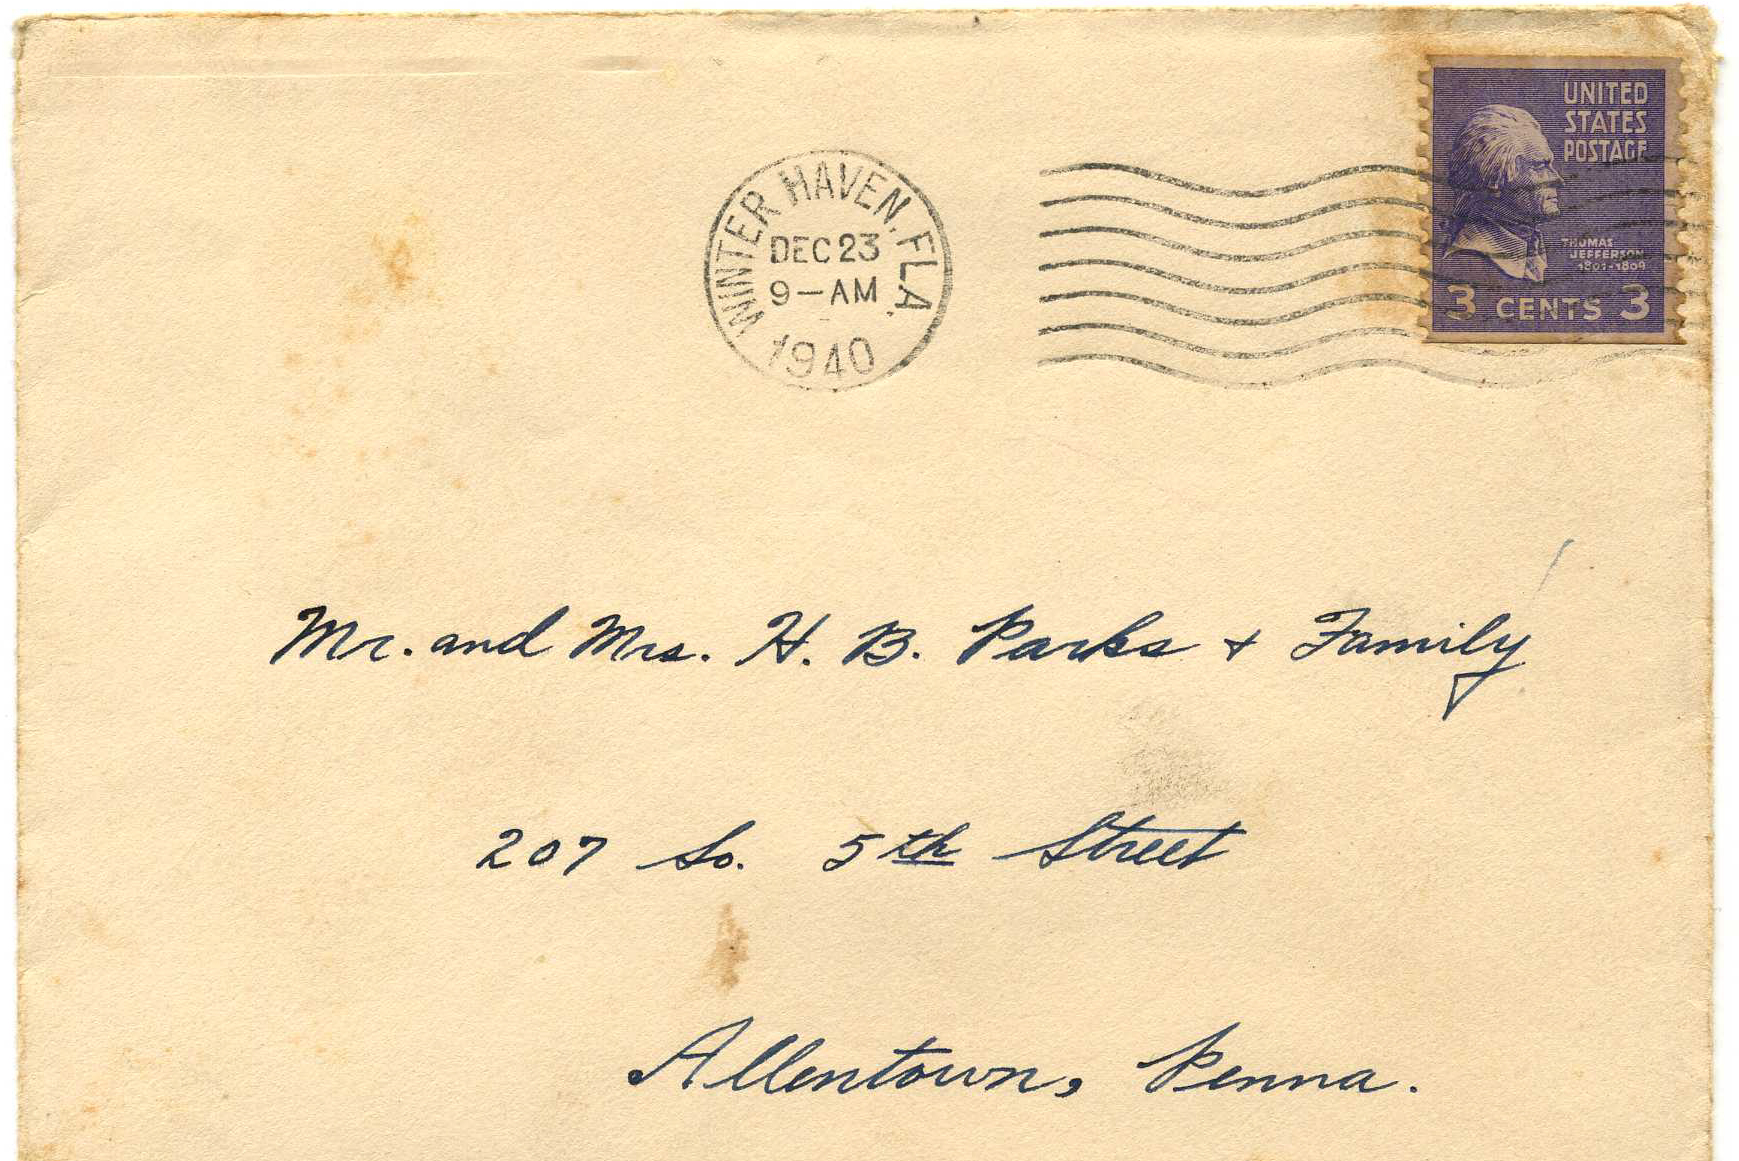 WINTER HAVEN, FLA.
DEC 23
9-AM
1940
UNITED
STATES
POSTAGE
THOMAS
JEFFERSON
1801-1809
3 CENTS 3
Mr. and Mrs. H. B. Parks + Family
207 So. 5th Street
Allentown, Penna.